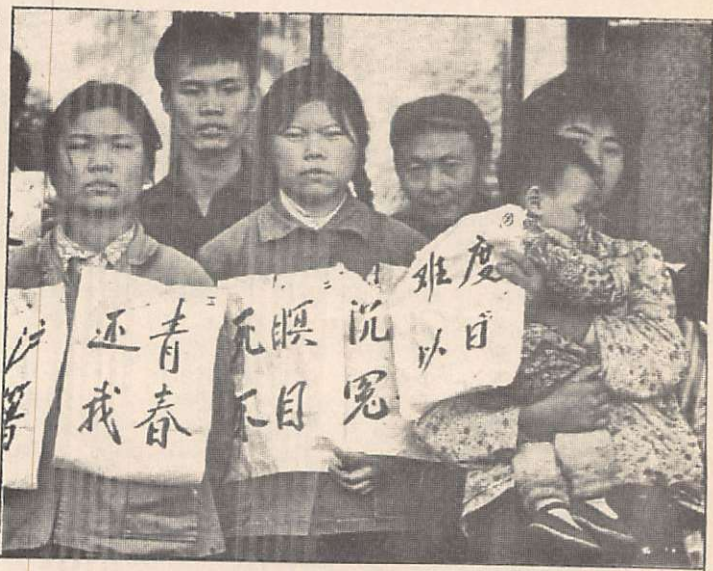 还我
青春
死不
瞑目
沉冤
难以
度日